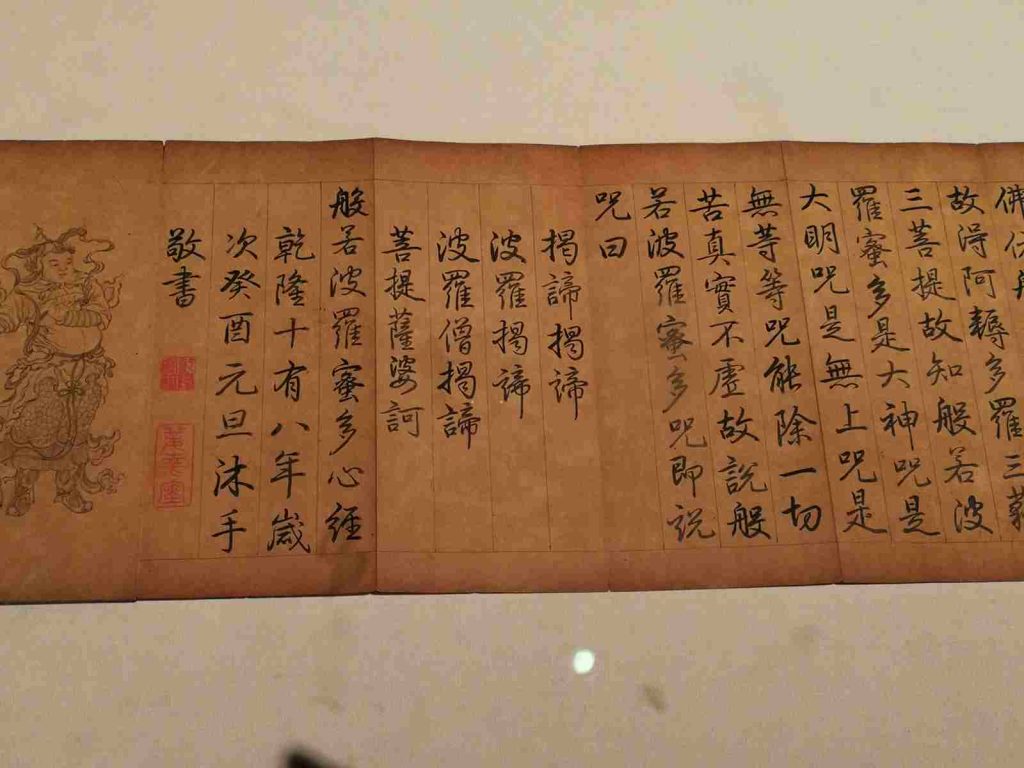 佛依般
故得阿耨多羅三藐
三菩提故知般若波
羅蜜多是大神咒是
大明咒是無上咒是
無等等咒能除一切
苦真實不虛故說般
若波羅蜜多咒即說
咒曰
揭諦揭諦
波羅揭諦
波羅僧揭諦
菩提薩婆訶
般若波羅蜜多心經
乾隆十有八年歲
次癸酉元旦沐手
敬書